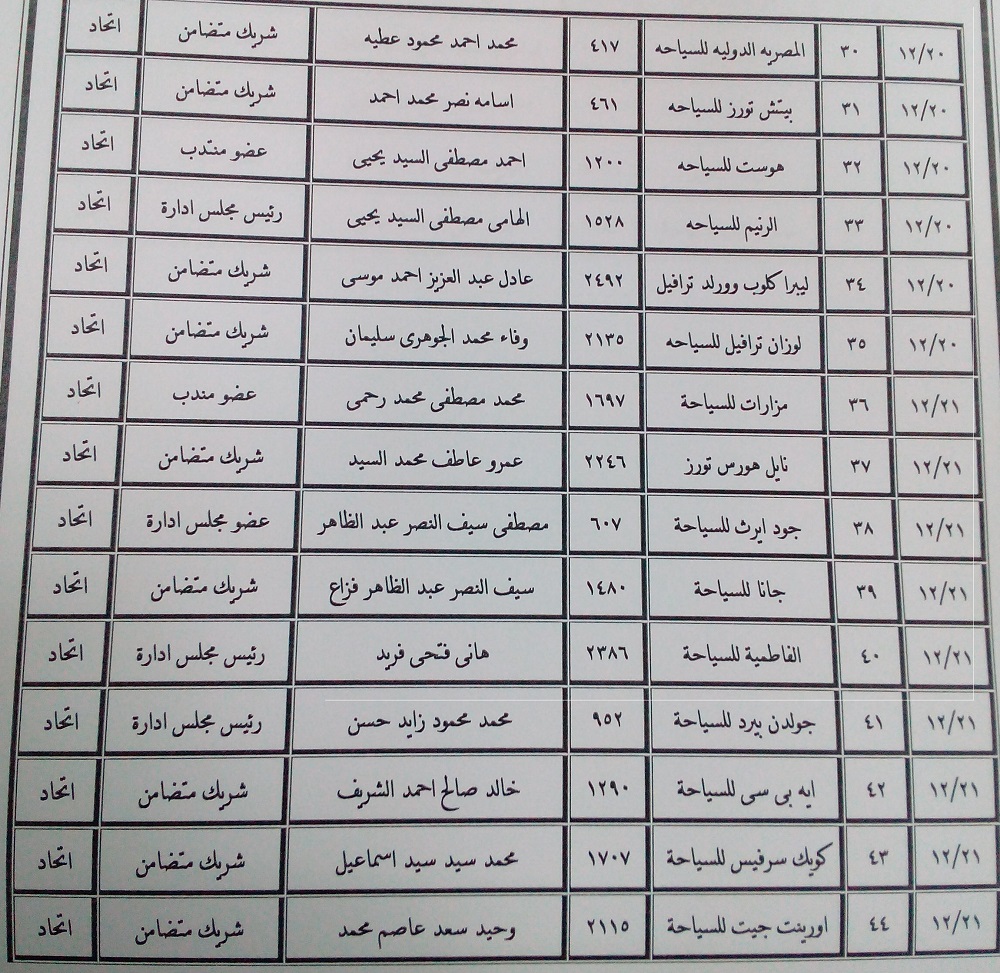 ١٢/٢٠ ٣٠ المصريه الدوليه للسياحه ٤١٧ محمد احمد محمود عطيه شريك متضامن اتحاد
١٢/٢٠ ٣١ بيتش تورز للسياحه ٤٦١ اسامه نصر محمد احمد شريك متضامن اتحاد
١٢/٢٠ ٣٢ هوست للسياحه ١٢٠٠ احمد مصطفى السيد يحيى عضو منتدب اتحاد
١٢/٢٠ ٣٣ الرنيم للسياحه ١٥٢٨ الهامى مصطفى السيد يحيى رئيس مجلس ادارة اتحاد
١٢/٢٠ ٣٤ ليبرا كلوب وورلد ترافيل ٢٤٩٢ عادل عبد العزيز احمد موسى شريك متضامن اتحاد
١٢/٢٠ ٣٥ لوزان ترافيل للسياحه ٢١٣٥ وفاء محمد الجوهرى سليمان شريك متضامن اتحاد
١٢/٢١ ٣٦ مزارات للسياحة ١٦٩٧ محمد مصطفى محمد رحمى عضو مندب اتحاد
١٢/٢١ ٣٧ نايل هورس تورز ٢٢٤٦ عمرو عاطف محمد السيد شريك متضامن اتحاد
١٢/٢١ ٣٨ جود ايرث للسياحة ٦٠٧ مصطفى سيف النصر عبد الظاهر عضو مجلس ادارة اتحاد
١٢/٢١ ٣٩ جانا للسياحة ١٤٨٠ سيف النصر عبد الظاهر فزاع شريك متضامن اتحاد
١٢/٢١ ٤٠ الفاطمية للسياحة ٢٣٨٦ هانى فتحى فريد رئيس مجلس ادارة اتحاد
١٢/٢١ ٤١ جولدن بيرد للسياحة ٩٥٢ محمد محمود زايد حسن رئيس مجلس ادارة اتحاد
١٢/٢١ ٤٢ ايه بى سى للسياحة ١٢٩٠ خالد صالح احمد الشريف شريك متضامن اتحاد
١٢/٢١ ٤٣ كويك سرفيس للسياحة ١٧٠٧ محمد سيد سيد اسماعيل شريك متضامن اتحاد
١٢/٢١ ٤٤ اورينت جيت للسياحة ٢١١٥ وحيد سعد عاصم محمد شريك متضامن اتحاد